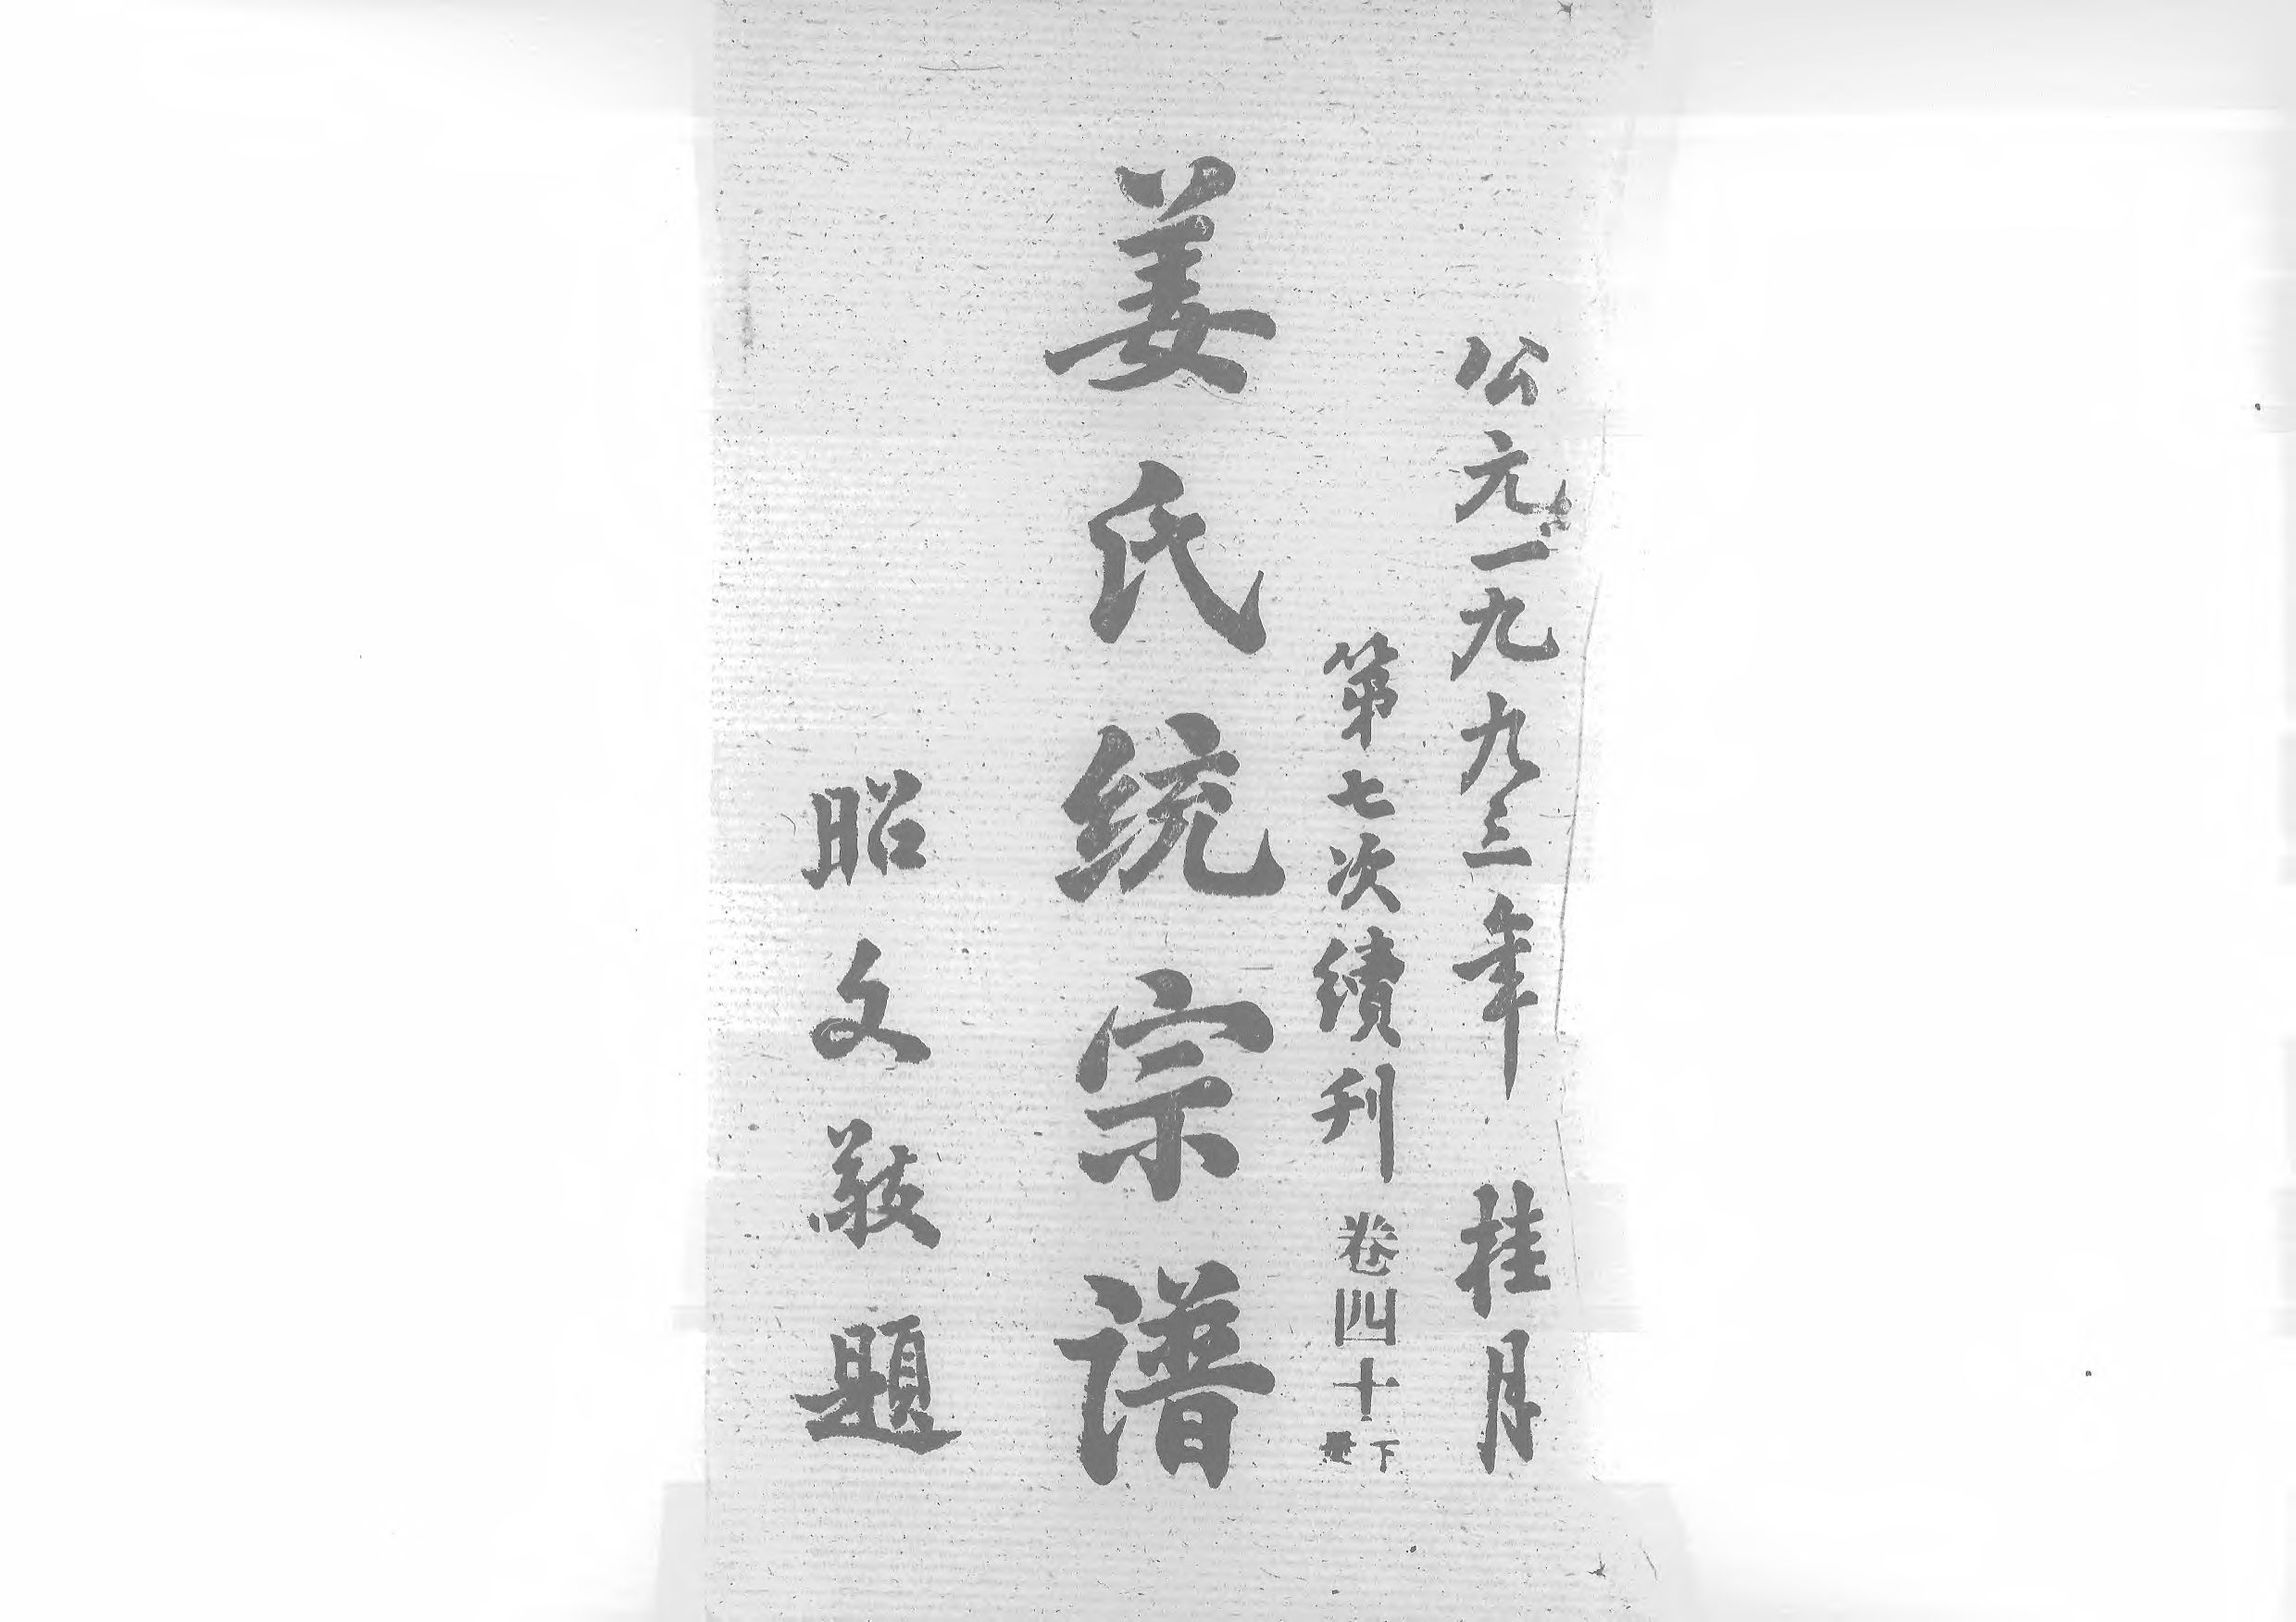 公元一九九三年 桂月
第七次續刊 卷四十下册
姜氏统宗谱
昭文敬题